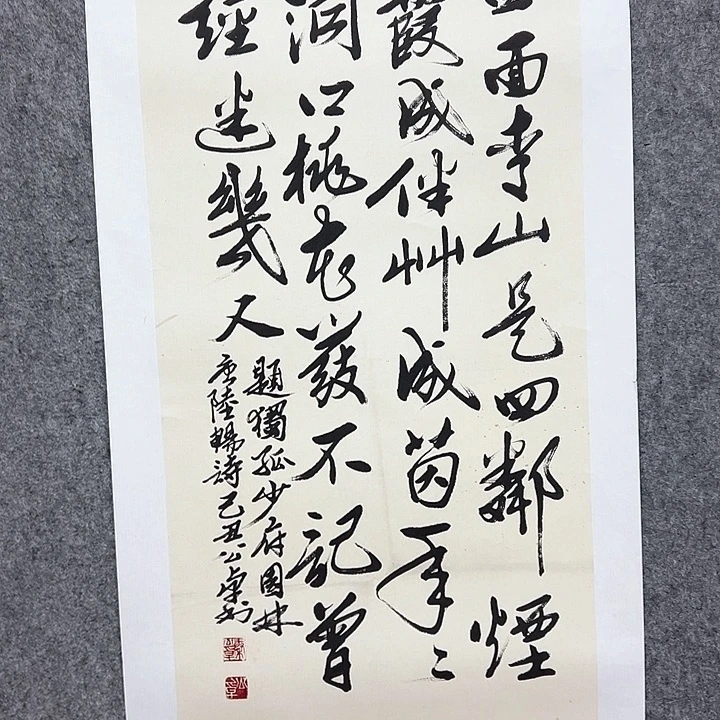 面青山是四鄰煙
霞成伴艸成茵年〻
洞口桃花發不記曾
經迷幾人
題獨孤少府園林
唐陸暢詩己丑公卓书